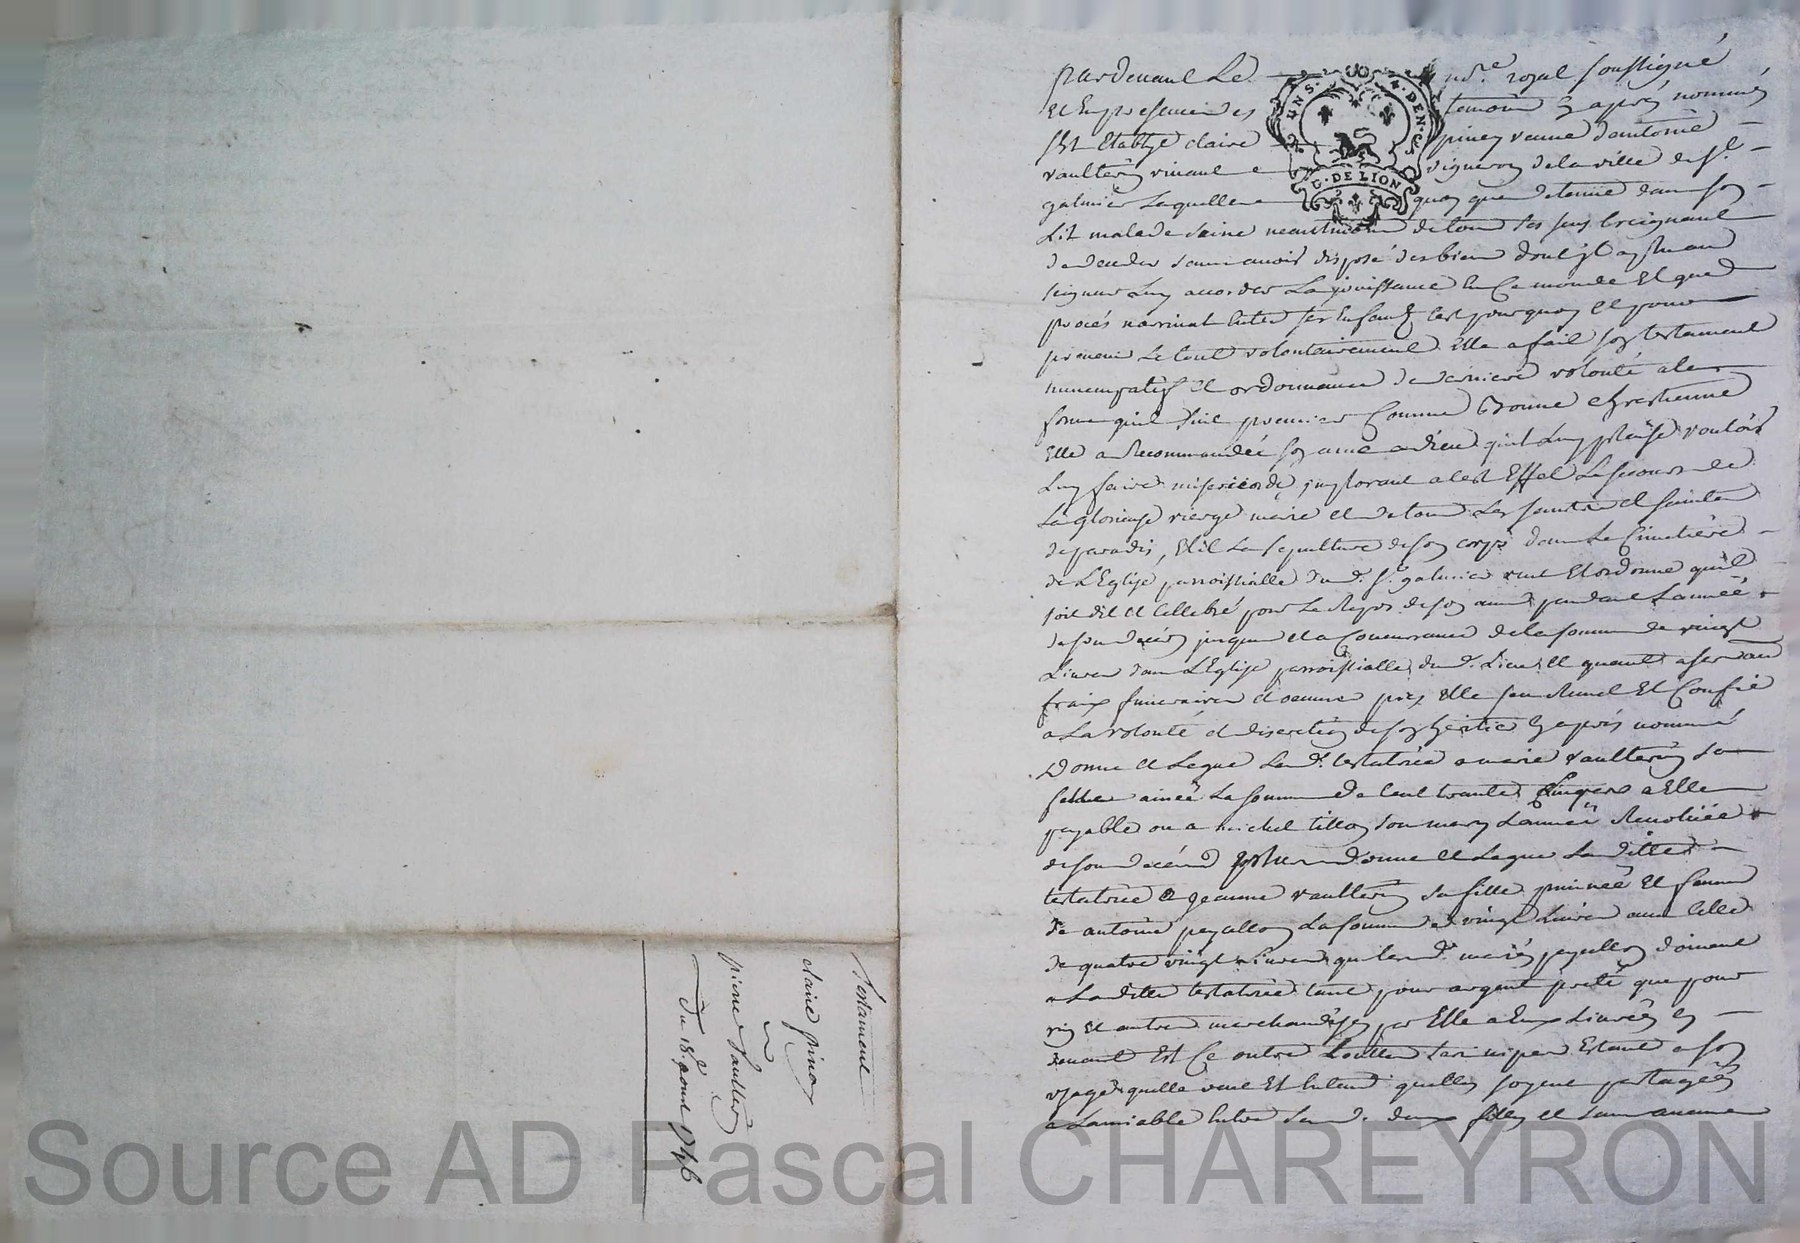 pardevant Le no.re royal soussigné
et En presence des temoins cy apres nommés
sst Establye claire pinay veuve d'antoine
vaulterin vivant vigneron de la ville de St
galmier Laquelle quoy que detenue dans son
Lit malade saine neantmoins de tous ses sens craignant
de deceder sans avoir disposé des biens dont il a plu au
seigneur Luy accorder La jouissance En Ce monde Et que
procés narrivat Entre ses Enfants Cest pourquoy et pour
prevenir Le tout volontairement Elle a fait son testament
nuncupatif et ordonnance de derniere volonté a la
forme quil suit premier Comme Bonne chrestienne
Elle a Recommandée son ame a dieu quil Luy plaise vouloir
Luy faire misericorde, implorant a cest Effet Le secours de
La glorieuse vierge marie et de tous Les saints et saintes
de paradis, Elit La sepulture de son corps dans Le Cimetiere
de L'Eglise parroissialle du d. St galmier veut Et ordonne quil
soit dit et Cellebré pour Le Repos de son ame pendant L'année
de son deces jusques et a Concurrance de la somme de vingt
Livres dans L'Eglise parroissialle du d. Lieu, et quant a ses autres
fraix funeraires et oeuvres pies Elle sen Remet Et Confie
a La volonté et discretion de son heritier cy apres nommé
Donne et Legue La d. testatrice a marie vaulterin sa
fille ainée La somme de Cent trante Livres a Elle
payable ou a michel tillon son mary L'année Revoluée
de son decéd plus donne et Legue La ditte
testatrice a jeanne vaulterin sa fille puinée Et femme
de antoine peyallon La somme de vingt Livres avec Celle
de quatre vingt Livres que les d. mariés peyallon doivent
a La ditte testatrice tant pour argent preté que pour
vin Et autres marchandises par Elle a Eux Livrées cy
devant Est Ce outre toutes Estant a son
usage quelle veut Et Entend quelles soyent partagées
a Lamiable Entre Les d. deux filles et sans aucune
Testament
claire pinay
pierre Vaulterin
Du 18.e aout 1746
G. DE LION
Source AD Pascal CHAREYRON